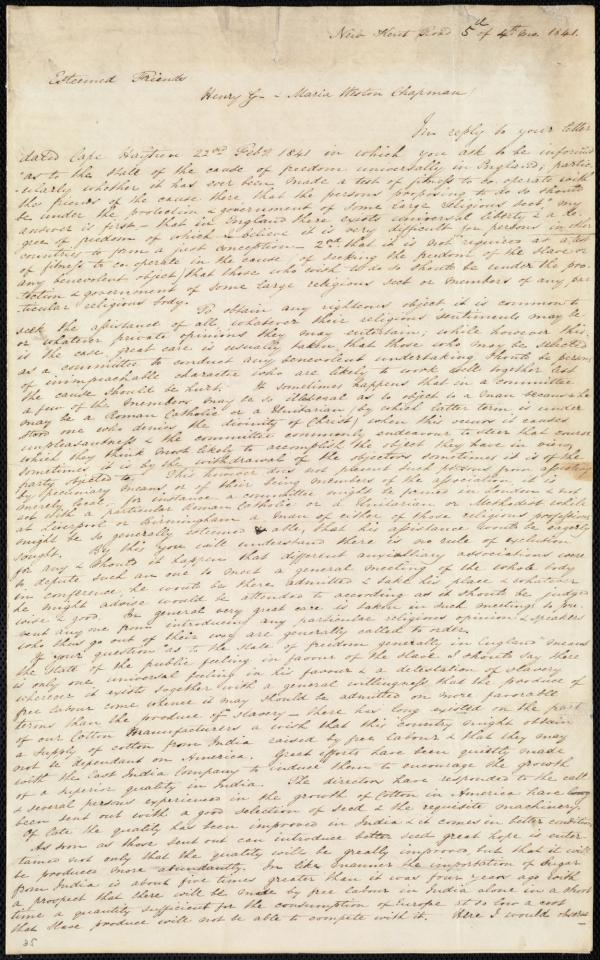 New Kent Road 5th of 4th mo. 1841.
Esteemed Friends
Henry G. & Maria Weston Chapman!
In reply to your letter
dated Cape Haytien 22nd Feby 1841 in which you ask to be informed
"as to the state of the cause of freedom universally in England; partic-
-ularly whether it has ever been made a test of fitness to co operate with
the friends of the cause there, that the persons proposing to do so should
be under the protection & government of some large religious sect," my
answer is first - that in England there exists universal liberty & a de-
gree of freedom of which I believe it is very difficult for persons in other
countries to form a just conception - 2nd that it is not required as a test
of fitness to co operate in the cause of seeking the freedom of the Slave or
any benevolent object, that those who wish to do so should be under the pro-
tection & government of some large religious sect or members of any par
ticular religious body.
To obtain any righteous object it is common to
seek the assistance of all, whatever their religious sentiments may be
or whatever private opinions they may entertain; while however this
is the case, great care is usually taken that those who may be selected
as a committee to conduct any benevolent undertaking should be persons
of unimpeachable character who are likely to work well together lest
the cause should be hurt. It sometimes happens that in a committee
a few of the members may be so illiberal as to object to a man because he
may be a Roman Catholic or a Unitarian (by which latter term is under
stood one who denies the divinity of Christ) when this occurs it causes
unpleasantness & the committee commonly endeavour to steer that course
which they think most likely to accomplish the object they have in view,
sometimes it is by the withdrawal of the objectors sometimes it is of the
party objected to. This however does not prevent such persons from assisting
by pecuniary means, or of their being members of the association, it is
merely local, for instance a committee might be formed in London & not
act with a particular Roman Catholic or a Unitarian or Methodist while
in Liverpool or Birmingham a man of either of these religious professions
might be so generally esteemed & able, that his assistance would be eagerly
sought. By this you will understand there is no rule of exclusion
for any & should it happen that different auxiliary associations were
to depute such an one to meet a general meeting of the whole body
in conference, he would be there admitted & take his place & whatever
he might advise would be attended to according as it should be judged
wise & good. In general very great care is taken in such meetings to pre-
vent any one from introducing any particular religious opinion & speakers
who thus go out of their way are generally called to order.
If your question "as to the state of freedom generally in England" means
the state of the public feeling in favour of the slave I should say there
is only one universal feeling in his favour & a detestation of slavery
wherever it exists together with a general willingness that the produce of
free labour come whence it may should be admitted on more favorable
terms than the produce of Slavery - there has long existed on the part
of our Cotton Manufacturers a wish that this country might obtain
a supply of cotton from India raised by free labour & that they may
not be dependant on America. Great efforts have been quietly made
with the East India Company to induce them to encourage the growth
of a superior quality in India. The directors have responded to the call
& several persons experienced in the growth of Cotton in America have
been sent out with a good selection of seed & the requisite machinery.
Of late the quality has been improved in India & it comes in better condition
As soon as those sent out can introduce better seed great hope is enter
tained not only that the quality will be greatly improved but that it will
be produced more abundantly. In like manner the importation of Sugar
from India is about five times greater than it was four years ago with
a prospect that there will be made by free labour in India alone in a short
time a quantity sufficient for the consumption of Europe at so low a cost
that Slave produce will not be able to compete with it. Here I would observe
35